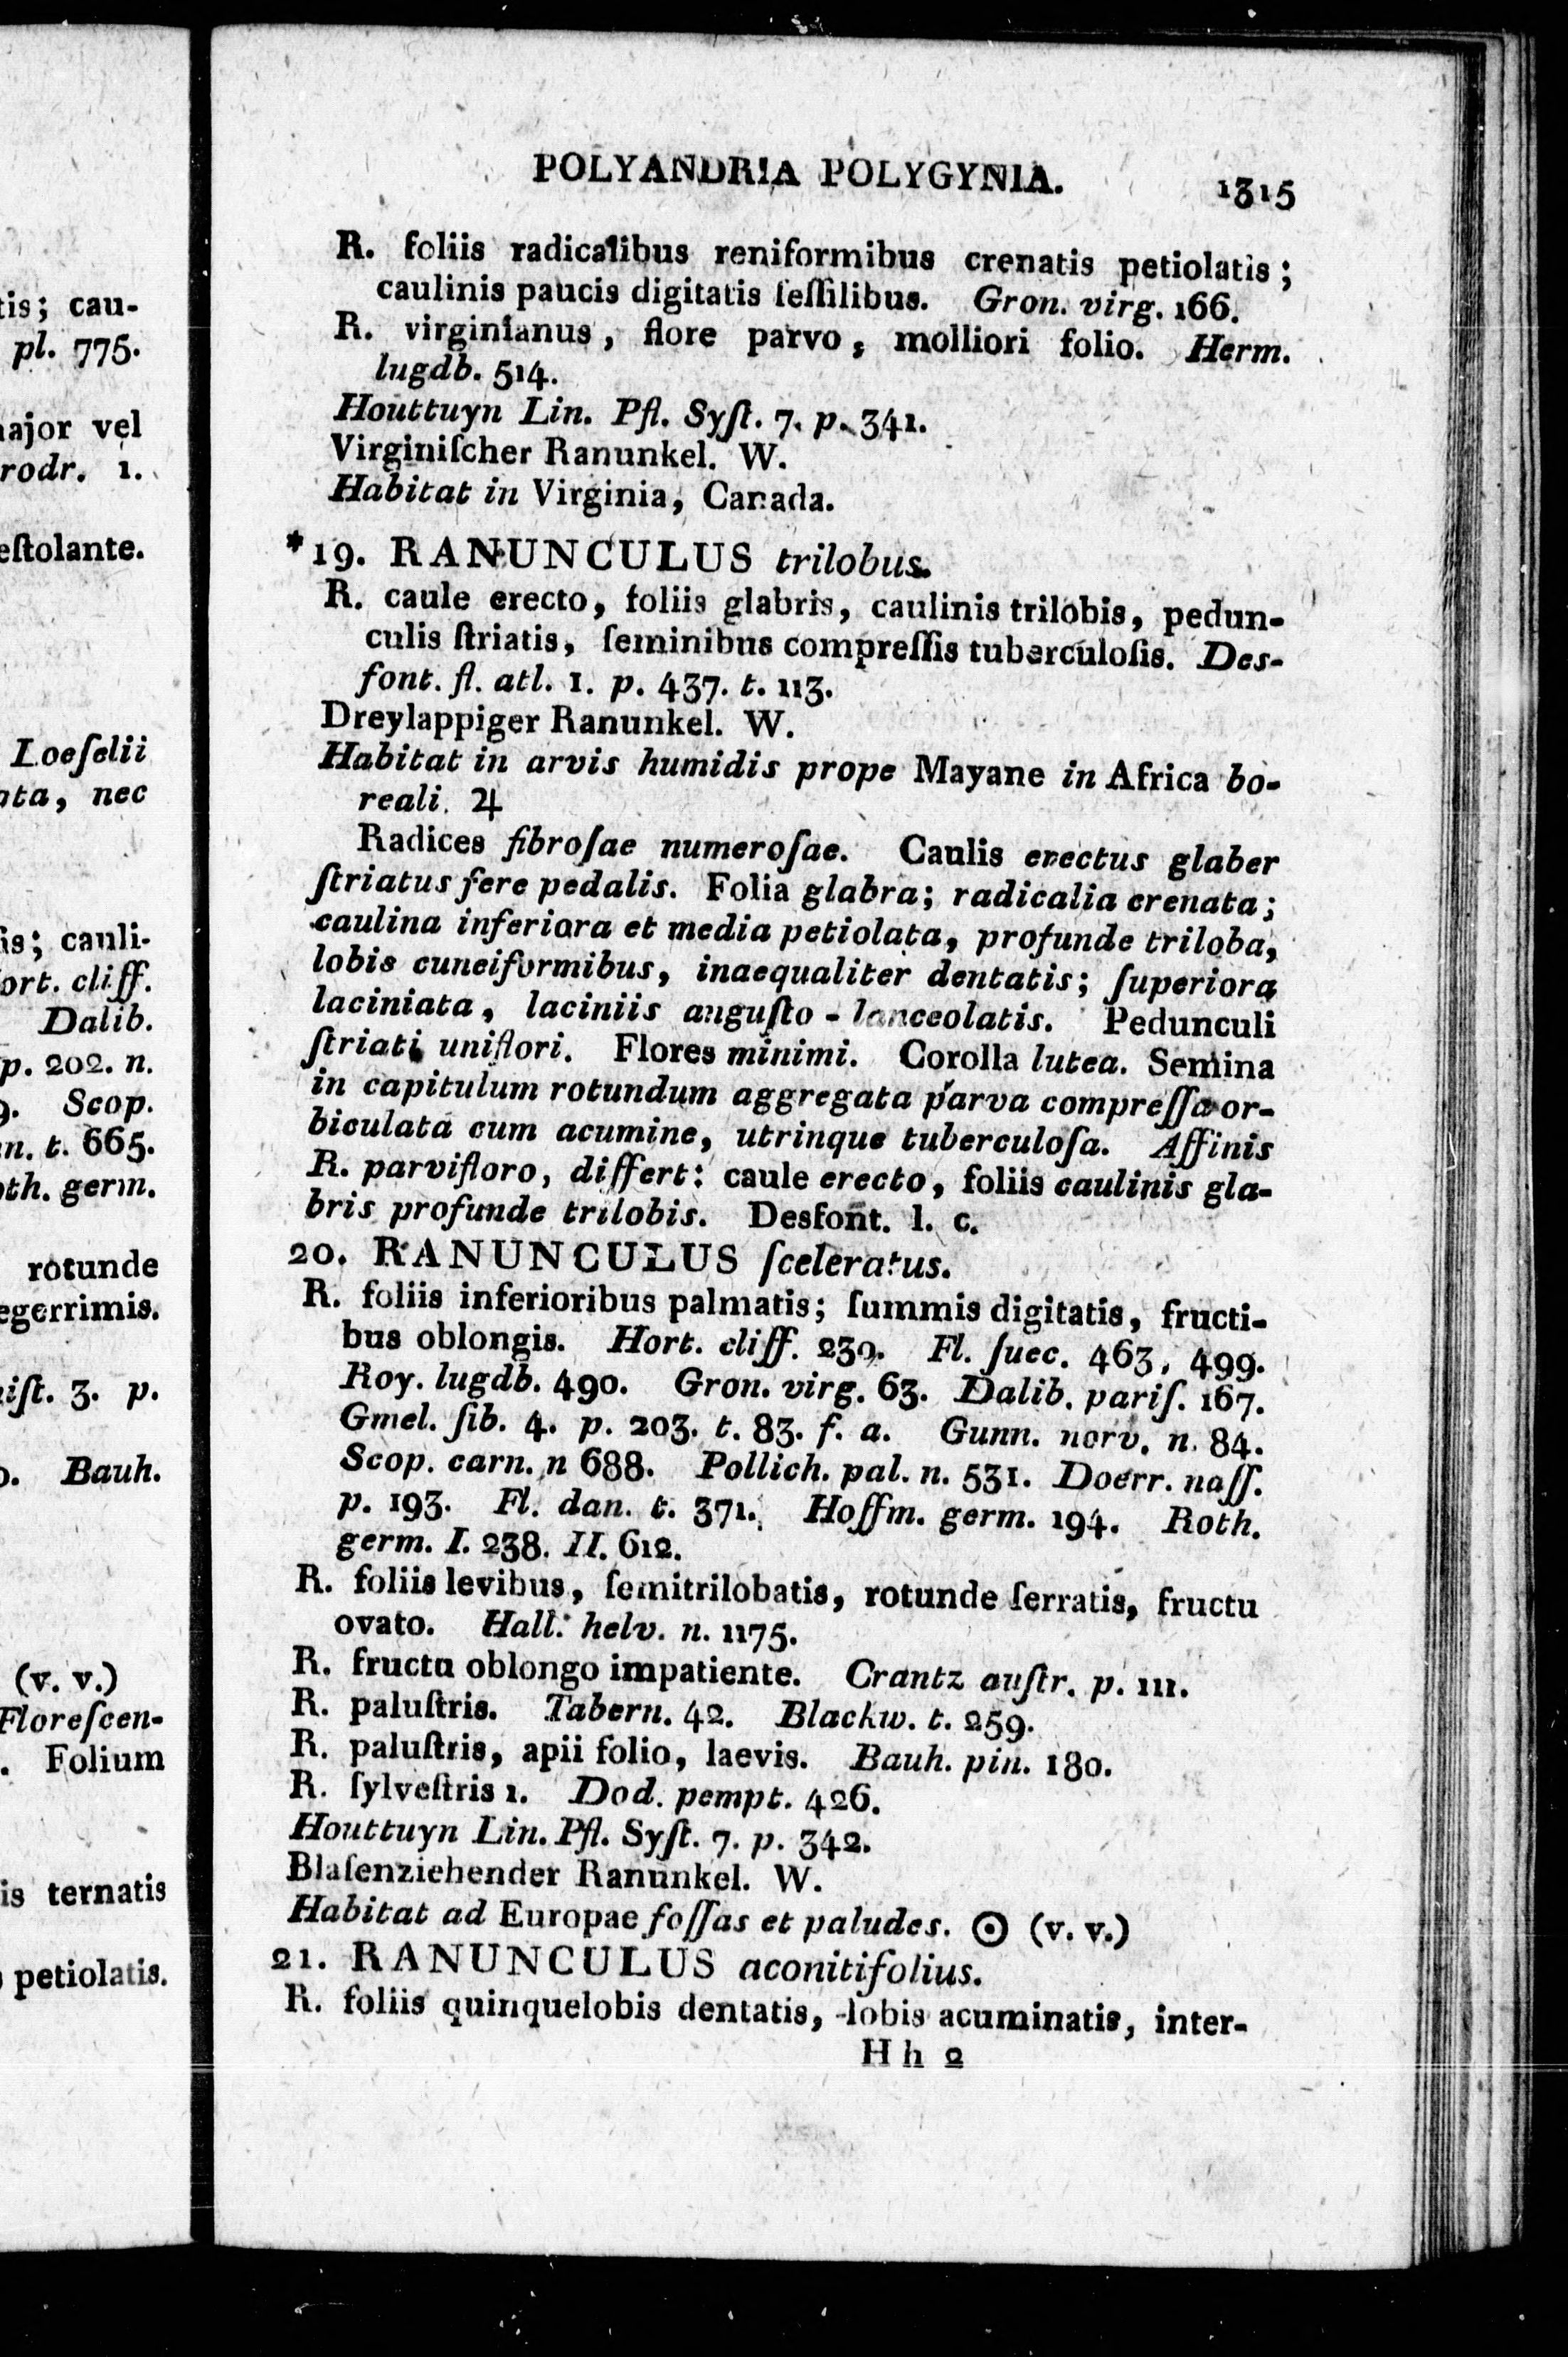 tis; cau-
pl. 775.
major vel
rodr. 1.
eſtolante.
Loeſelii
nec
is; cauli-
ort. cliff.
Dalib.
p. 202. n.
Scop.
n. t. 665.
oth. germ.
rotunde
egerrimis.
iſt. 3. p.
Bauh.
(v. v.)
Floreſcen-
Folium
is ternatis
petiolatis.
POLYANDRIA POLYGYNIA. 1315
R. foliis radicalibus reniformibus crenatis petiolatis;
caulinis paucis digitatis ſeſſilibus. Gron. virg. 166.
R. virginianus, flore parvo, molliori folio. Herm.
lugdb. 514.
Houttuyn Lin. Pfl. Syſt. 7. p. 341.
Virginiſcher Ranunkel. W.
Habitat in Virginia, Canada.
*19. RANUNCULUS trilobus.
R. caule erecto, foliis glabris, caulinis trilobis, pedun-
culis ſtriatis, ſeminibus compreſſis tuberculoſis. Des-
font. fl. atl. 1. p. 437. t. 113.
Dreylappiger Ranunkel. W.
Habitat in arvis humidis prope Mayane in Africa bo-
reali. ♃
Radices fibroſae numeroſae. Caulis erectus glaber
ſtriatus fere pedalis. Folia glabra; radicalia crenata;
caulina inferiora et media petiolata, profunde triloba,
lobis cuneiformibus, inaequaliter dentatis; ſuperiora
laciniata, laciniis anguſto - lanceolatis. Pedunculi
ſtriati uniflori. Flores minimi. Corolla lutea. Semina
in capitulum rotundum aggregata parva compreſſa or-
biculata cum acumine, utrinque tuberculoſa. Affinis
R. parvifloro, differt: caule erecto, foliis caulinis gla-
bris profunde trilobis. Desfont. l. c.
20. RANUNCULUS ſceleratus.
R. foliis inferioribus palmatis; ſummis digitatis, fructi-
bus oblongis. Hort. cliff. 230. Fl. ſuec. 463, 499.
Roy. lugdb. 490. Gron. virg. 63. Dalib. pariſ. 167.
Gmel. ſib. 4. p. 203. t. 83. f. a. Gunn. norv. n. 84.
Scop. carn. n 688. Pollich. pal. n. 531. Doerr. naſſ.
p. 193. Fl. dan. t. 371. Hoffm. germ. 194. Roth.
germ. I. 238. II. 612.
R. foliis levibus, ſemitrilobatis, rotunde ſerratis, fructu
ovato. Hall. helv. n. 1175.
R. fructu oblongo impatiente. Crantz auſtr. p. 111.
R. paluſtris. Tabern. 42. Blackw. t. 259.
R. paluſtris, apii folio, laevis. Bauh. pin. 180.
R. ſylveſtris 1. Dod. pempt. 426.
Houttuyn Lin. Pfl. Syſt. 7. p. 342.
Blaſenziehender Ranunkel. W.
Habitat ad Europae foſſas et paludes. ☉ (v. v.)
21. RANUNCULUS aconitifolius.
R. foliis quinquelobis dentatis, lobis acuminatis, inter-
H h 2